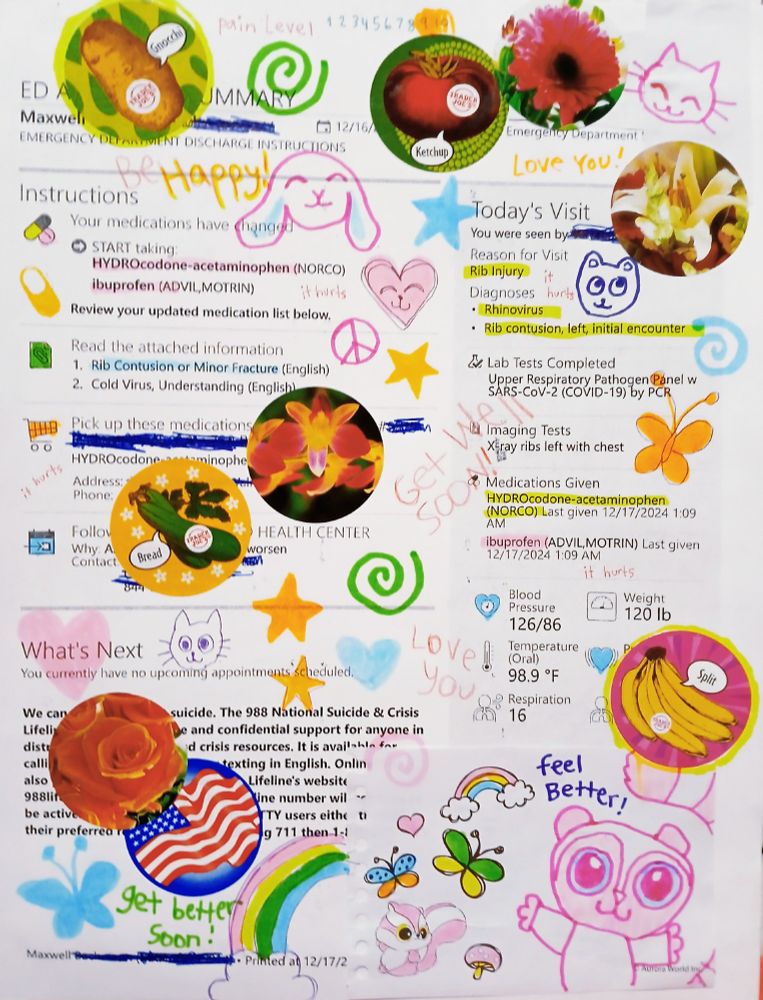 Pain Level 1 2 3 4 5 6 7 8 9 10
Gnocchi
TRADER JOE'S
ED A UMMARY
Maxwell
12/16/
EMERGENCY DEPARTMENT DISCHARGE INSTRUCTIONS
TRADER JOE'S
Ketchup
Emergency Department
Be Happy!
Love You!
Instructions
Your medications have changed
START taking:
HYDROcodone-acetaminophen (NORCO)
ibuprofen (ADVIL,MOTRIN)
it hurts
Review your updated medication list below.
Read the attached information
1. Rib Contusion or Minor Fracture (English)
2. Cold Virus, Understanding (English)
Pick up these medications
HYDROcodone-acetaminophe
it hurts
Address:
Phone:
Bread
TRADER JOE'S
Follo HEALTH CENTER
Why: A worsen
Contact
844
Get Well
Soon!
Today's Visit
You were seen by
Reason for Visit
Rib Injury
it
hurts
Diagnoses
• Rhinovirus
• Rib contusion, left, initial encounter
Lab Tests Completed
Upper Respiratory Pathogen Panel w
SARS-CoV-2 (COVID-19) by PCR
Imaging Tests
X-ray ribs left with chest
Medications Given
HYDROcodone-acetaminophen
(NORCO) Last given 12/17/2024 1:09
AM
ibuprofen (ADVIL,MOTRIN) Last given
12/17/2024 1:09 AM
it hurts
Blood
Pressure
126/86
Weight
120 lb
Temperature
(Oral)
98.9 °F
P
Respiration
16
Split
TRADER JOE'S
What's Next
You currently have no upcoming appointments scheduled.
Love
You
We can suicide. The 988 National Suicide & Crisis
Lifeli e and confidential support for anyone in
distr d crisis resources. It is available for
calli texting in English. Onlin
also Lifeline's website
988lif ine number wil
be active TTY users eithe
their preferred r g 711 then 1-
feel
Better!
get better
Soon!
Maxwell • Printed at 12/17/2
© Aurora World Inc.